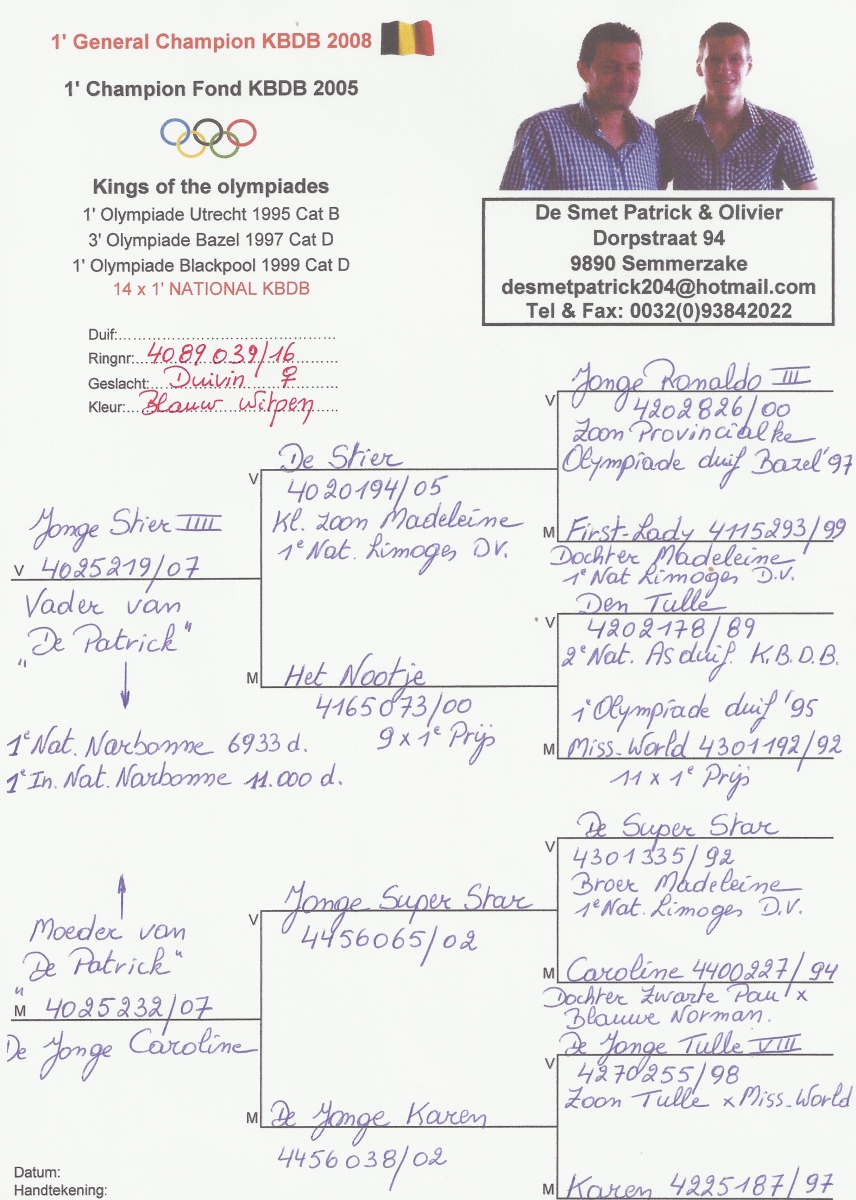 1' General Champion KBDB 2008
1' Champion Fond KBDB 2005
Kings of the olympiades
1' Olympiade Utrecht 1995 Cat B
3' Olympiade Bazel 1997 Cat D
1' Olympiade Blackpool 1999 Cat D
14 x 1' NATIONAL KBDB
De Smet Patrick & Olivier
Dorpstraat 94
9890 Semmerzake
desmetpatrick204@hotmail.com
Tel & Fax: 0032(0)93842022
Duif:
Ringnr: 4089039/16
Geslacht: Duivin ♀
Kleur: Blauw Witpen
V
Jonge Stier IIII
4025219/07
Vader van
"De Patrick"
1e Nat. Narbonne 6933 d.
1e In. Nat. Narbonne 11.000 d.
Moeder van
"De Patrick"
M 4025232/07
De Jonge Caroline
V
De Stier
4020194/05
Kl. Zoon Madeleine
1e Nat. Limoges D.V.
M
Het Nootje
4165073/00
9 x 1e Prijs
V
Jonge Super Star
4456065/02
M De Jonge Karen
4456038/02
V
Jonge Ronaldo III
4202826/00
Zoon Provincialke
Olympiade duif Bazel '97
M First-Lady 4115293/99
Dochter Madeleine
1e Nat Limoges D.V.
V
Den Tulle
4202178/89
2e Nat. As duif. K.B.D.B.
1e Olympiade duif '95
M Miss-World 4301192/92
11 x 1e Prijs
V
De Super Star
4301335/92
Broer Madeleine
1e Nat. Limoges D.V.
M Caroline 4400227/94
Dochter Zwarte Pau x
Blauwe Norman.
V
De Jonge Tulle VIII
4270255/98
Zoon Tulle x Miss-World
M Karen 4225187/97
Datum:
Handtekening: